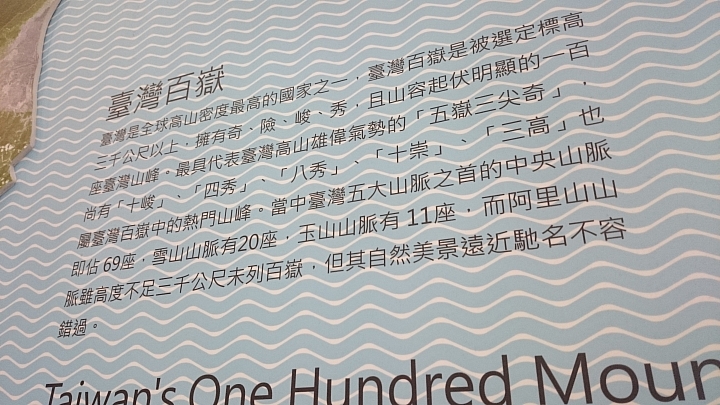 臺灣百嶽
臺灣是全球高山密度最高的國家之一，臺灣百嶽是被選定標高
三千公尺以上，擁有奇、險、峻、秀，且山容起伏明顯的一百
座臺灣山峰。最具代表臺灣高山雄偉氣勢的「五嶽三尖奇」，
尚有「十峻」、「四秀」、「八秀」、「十崇」、「三高」也
屬臺灣百嶽中的熱門山峰。當中臺灣五大山脈之首的中央山脈
即佔 69座，雪山山脈有20座，玉山山脈有 11座，而阿里山山
脈雖高度不足三千公尺未列百嶽，但其自然美景遠近馳名不容
錯過。
Taiwan's One Hundred